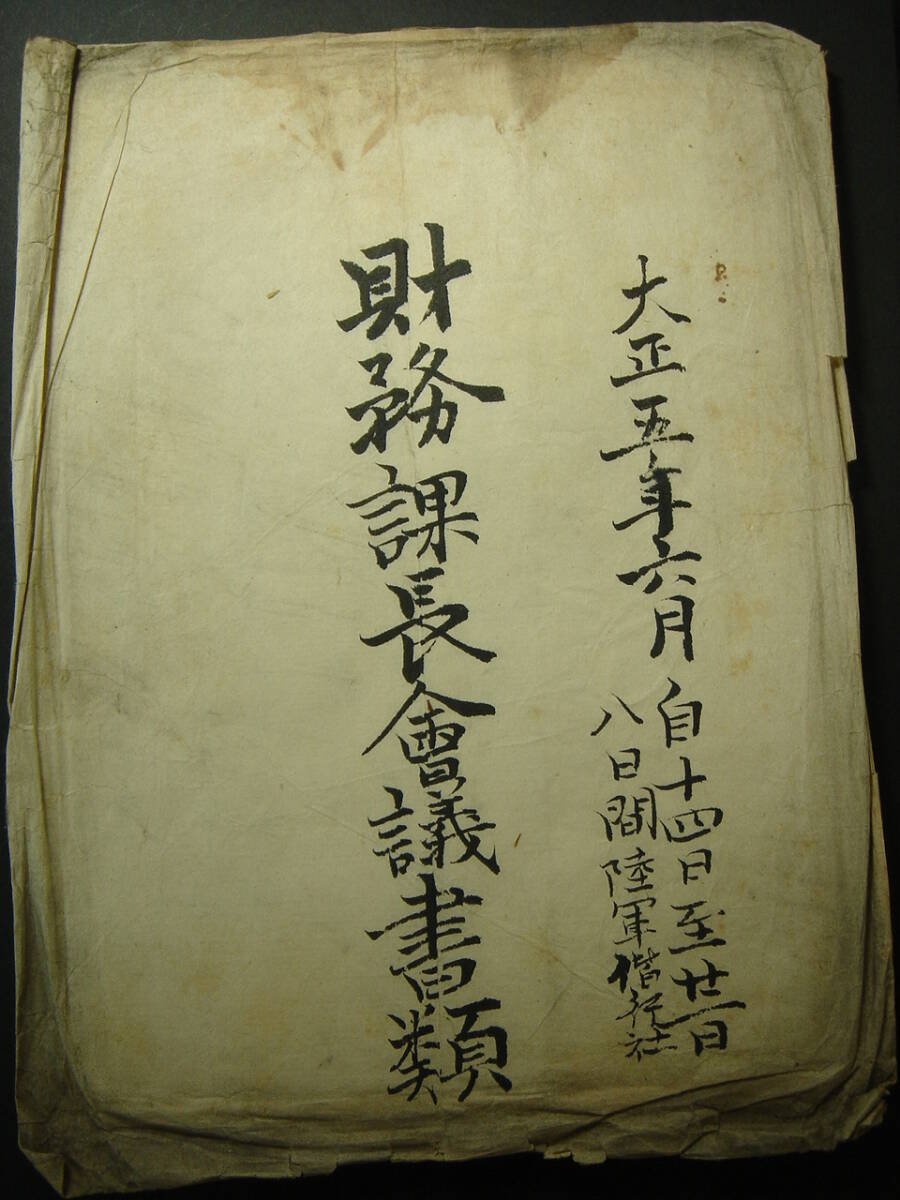 大正五年六月自十四日至廿一日
八日間陸軍偕行社
財務課長會議書類